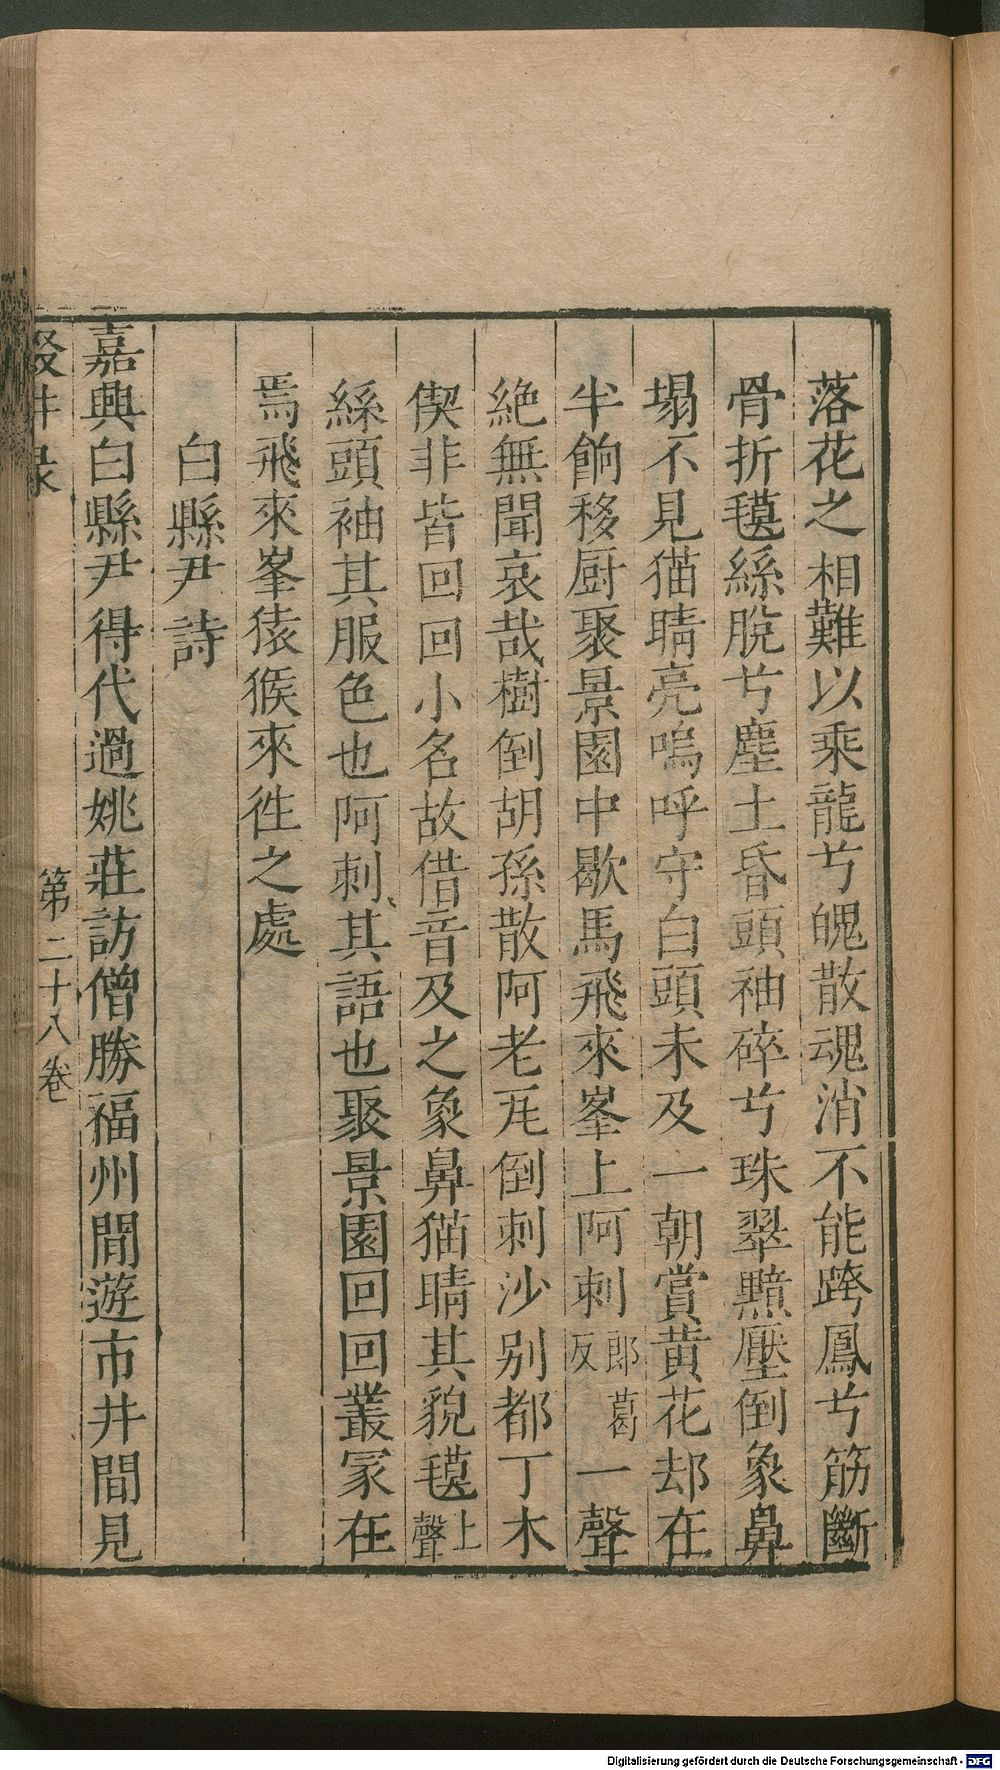 落花之相難以乘龍兮魄散魂消不能跨鳳兮筋斷
骨折氁絲脫兮塵土昏頭袖碎兮珠翠黯壓倒象鼻
塌不見猫睛亮嗚呼守白頭未及一朝賞黄花却在
半餉移厨聚景園中歇馬飛來峯上阿剌郎葛反一聲
絶無聞哀哉樹倒胡孫散阿老瓦倒剌沙别都丁木
偰非皆回回小名故借音及之象鼻猫睛其貌氁上聲
絲頭袖其服色也阿剌其語也聚景園回回叢冢在
焉飛來峯猿猴來徃之處
白縣尹詩
嘉興白縣尹得代過姚莊訪僧勝福州閒遊市井間見
第二十八卷
Digitalisierung gefördert durch die Deutsche Forschungsgemeinschaft - DFG